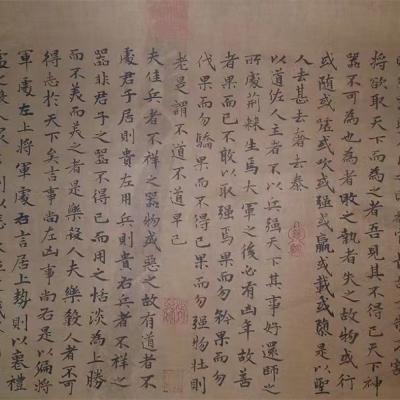 將欲取天下而為之者吾見其不得已天下神
器不可為也為者敗之執者失之故物或行
或隨或噓或吹或强或羸或載或隳是以聖
人去甚去奢去泰
以道佐人主者不以兵强天下其事好還師之
所處荊棘生焉大軍之後必有凶年故善
者果而已不敢以取强焉果而勿矜果而勿
伐果而勿驕果而不得已果而勿强物壯則
老是謂不道不道早已
夫佳兵者不祥之器物或惡之故有道者不
處君子居則貴左用兵則貴右兵者不祥之
器非君子之器不得已而用之恬淡為上勝
而不美而美之者是樂殺人夫樂殺人者不可
得志於天下矣吉事尚左凶事尚右是以偏將
軍處左上將軍處右言居上勢則以喪禮
處之殺人